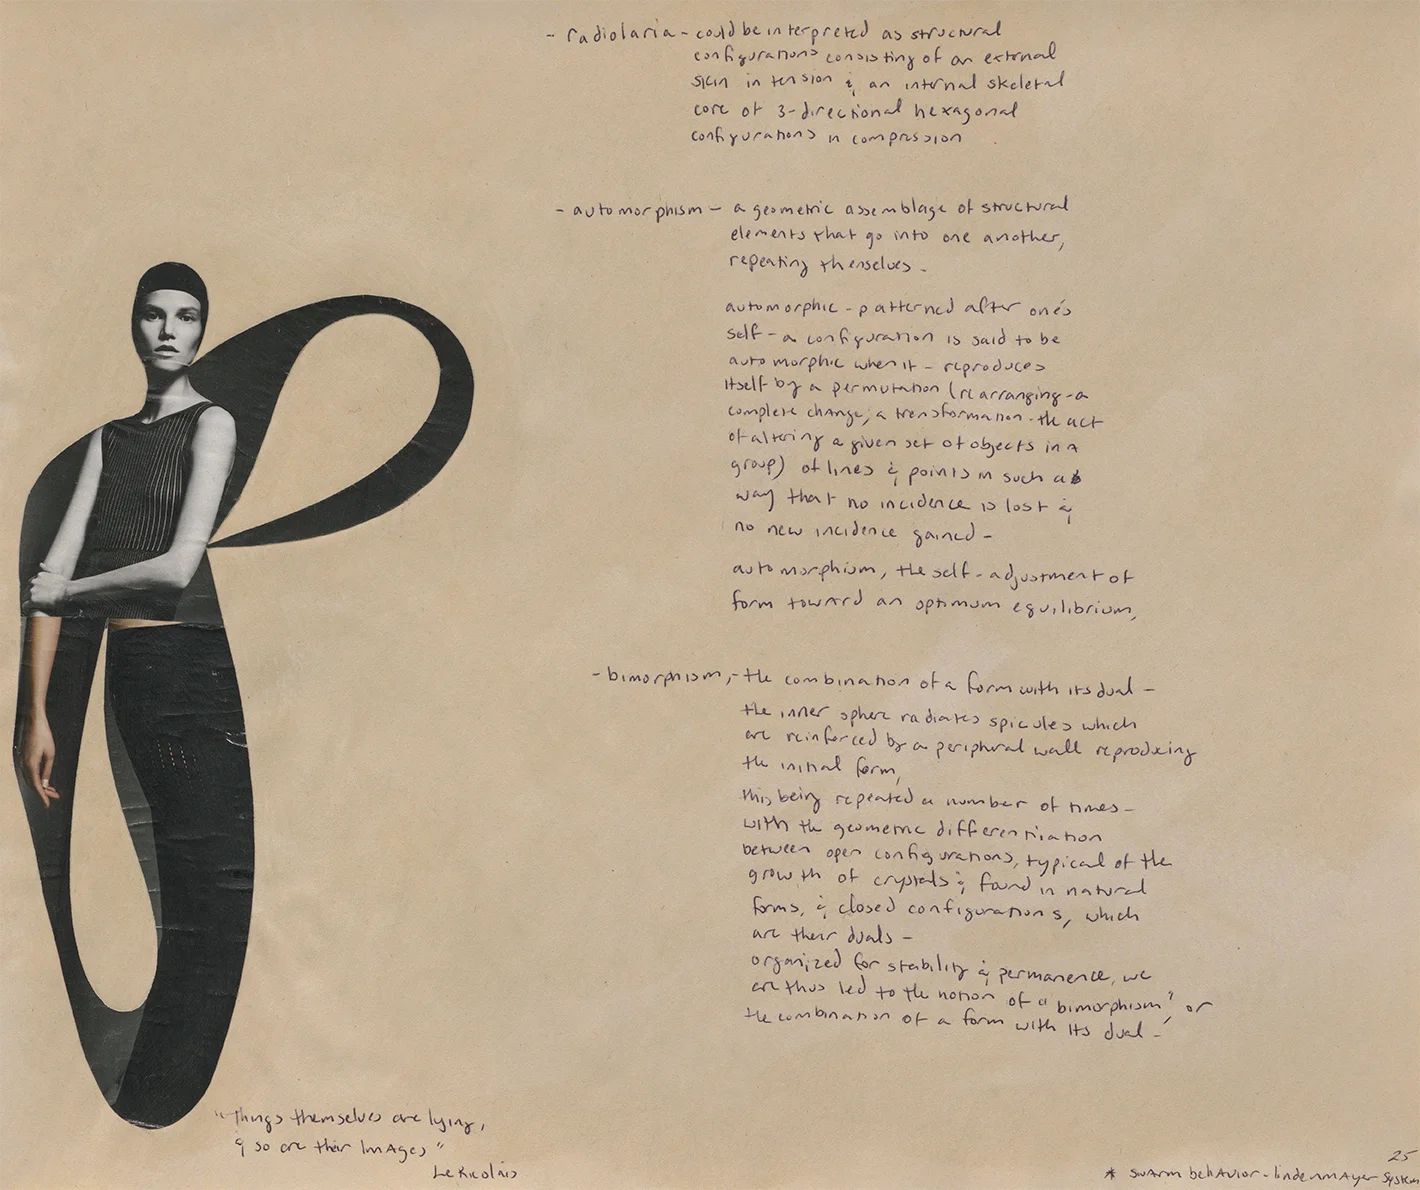 - radiolaria - could be interpreted as structural
configurations consisting of an external
skin in tension & an internal skeletal
core of 3-directional hexagonal
configurations in compression
- automorphism - a geometric assemblage of structural
elements that go into one another,
repeating themselves -
automorphic - patterned after one's
self - a configuration is said to be
automorphic when it - reproduces
itself by a permutation (rearranging - a
complete change; a transformation - the act
of altering a given set of objects in a
group) of lines & points in such a
way that no incidence is lost &
no new incidence gained -
automorphism, the self-adjustment of
form toward an optimum equilibrium,
- bimorphism, - the combination of a form with its dual -
the inner sphere radiates spicules which
are reinforced by a peripheral wall reproducing
the initial form,
this being repeated a number of times -
with the geometric differentiation
between open configurations, typical of the
growth of crystals & found in natural
forms, & closed configurations, which
are their duals -
organized for stability & permanence, we
are thus led to the notion of a "bimorphism" or
the combination of a form with its dual -
"Things themselves are lying,
& so are their ImAges"
Le Ricolais
25
* swArm behAvior - lindenmAyer systems